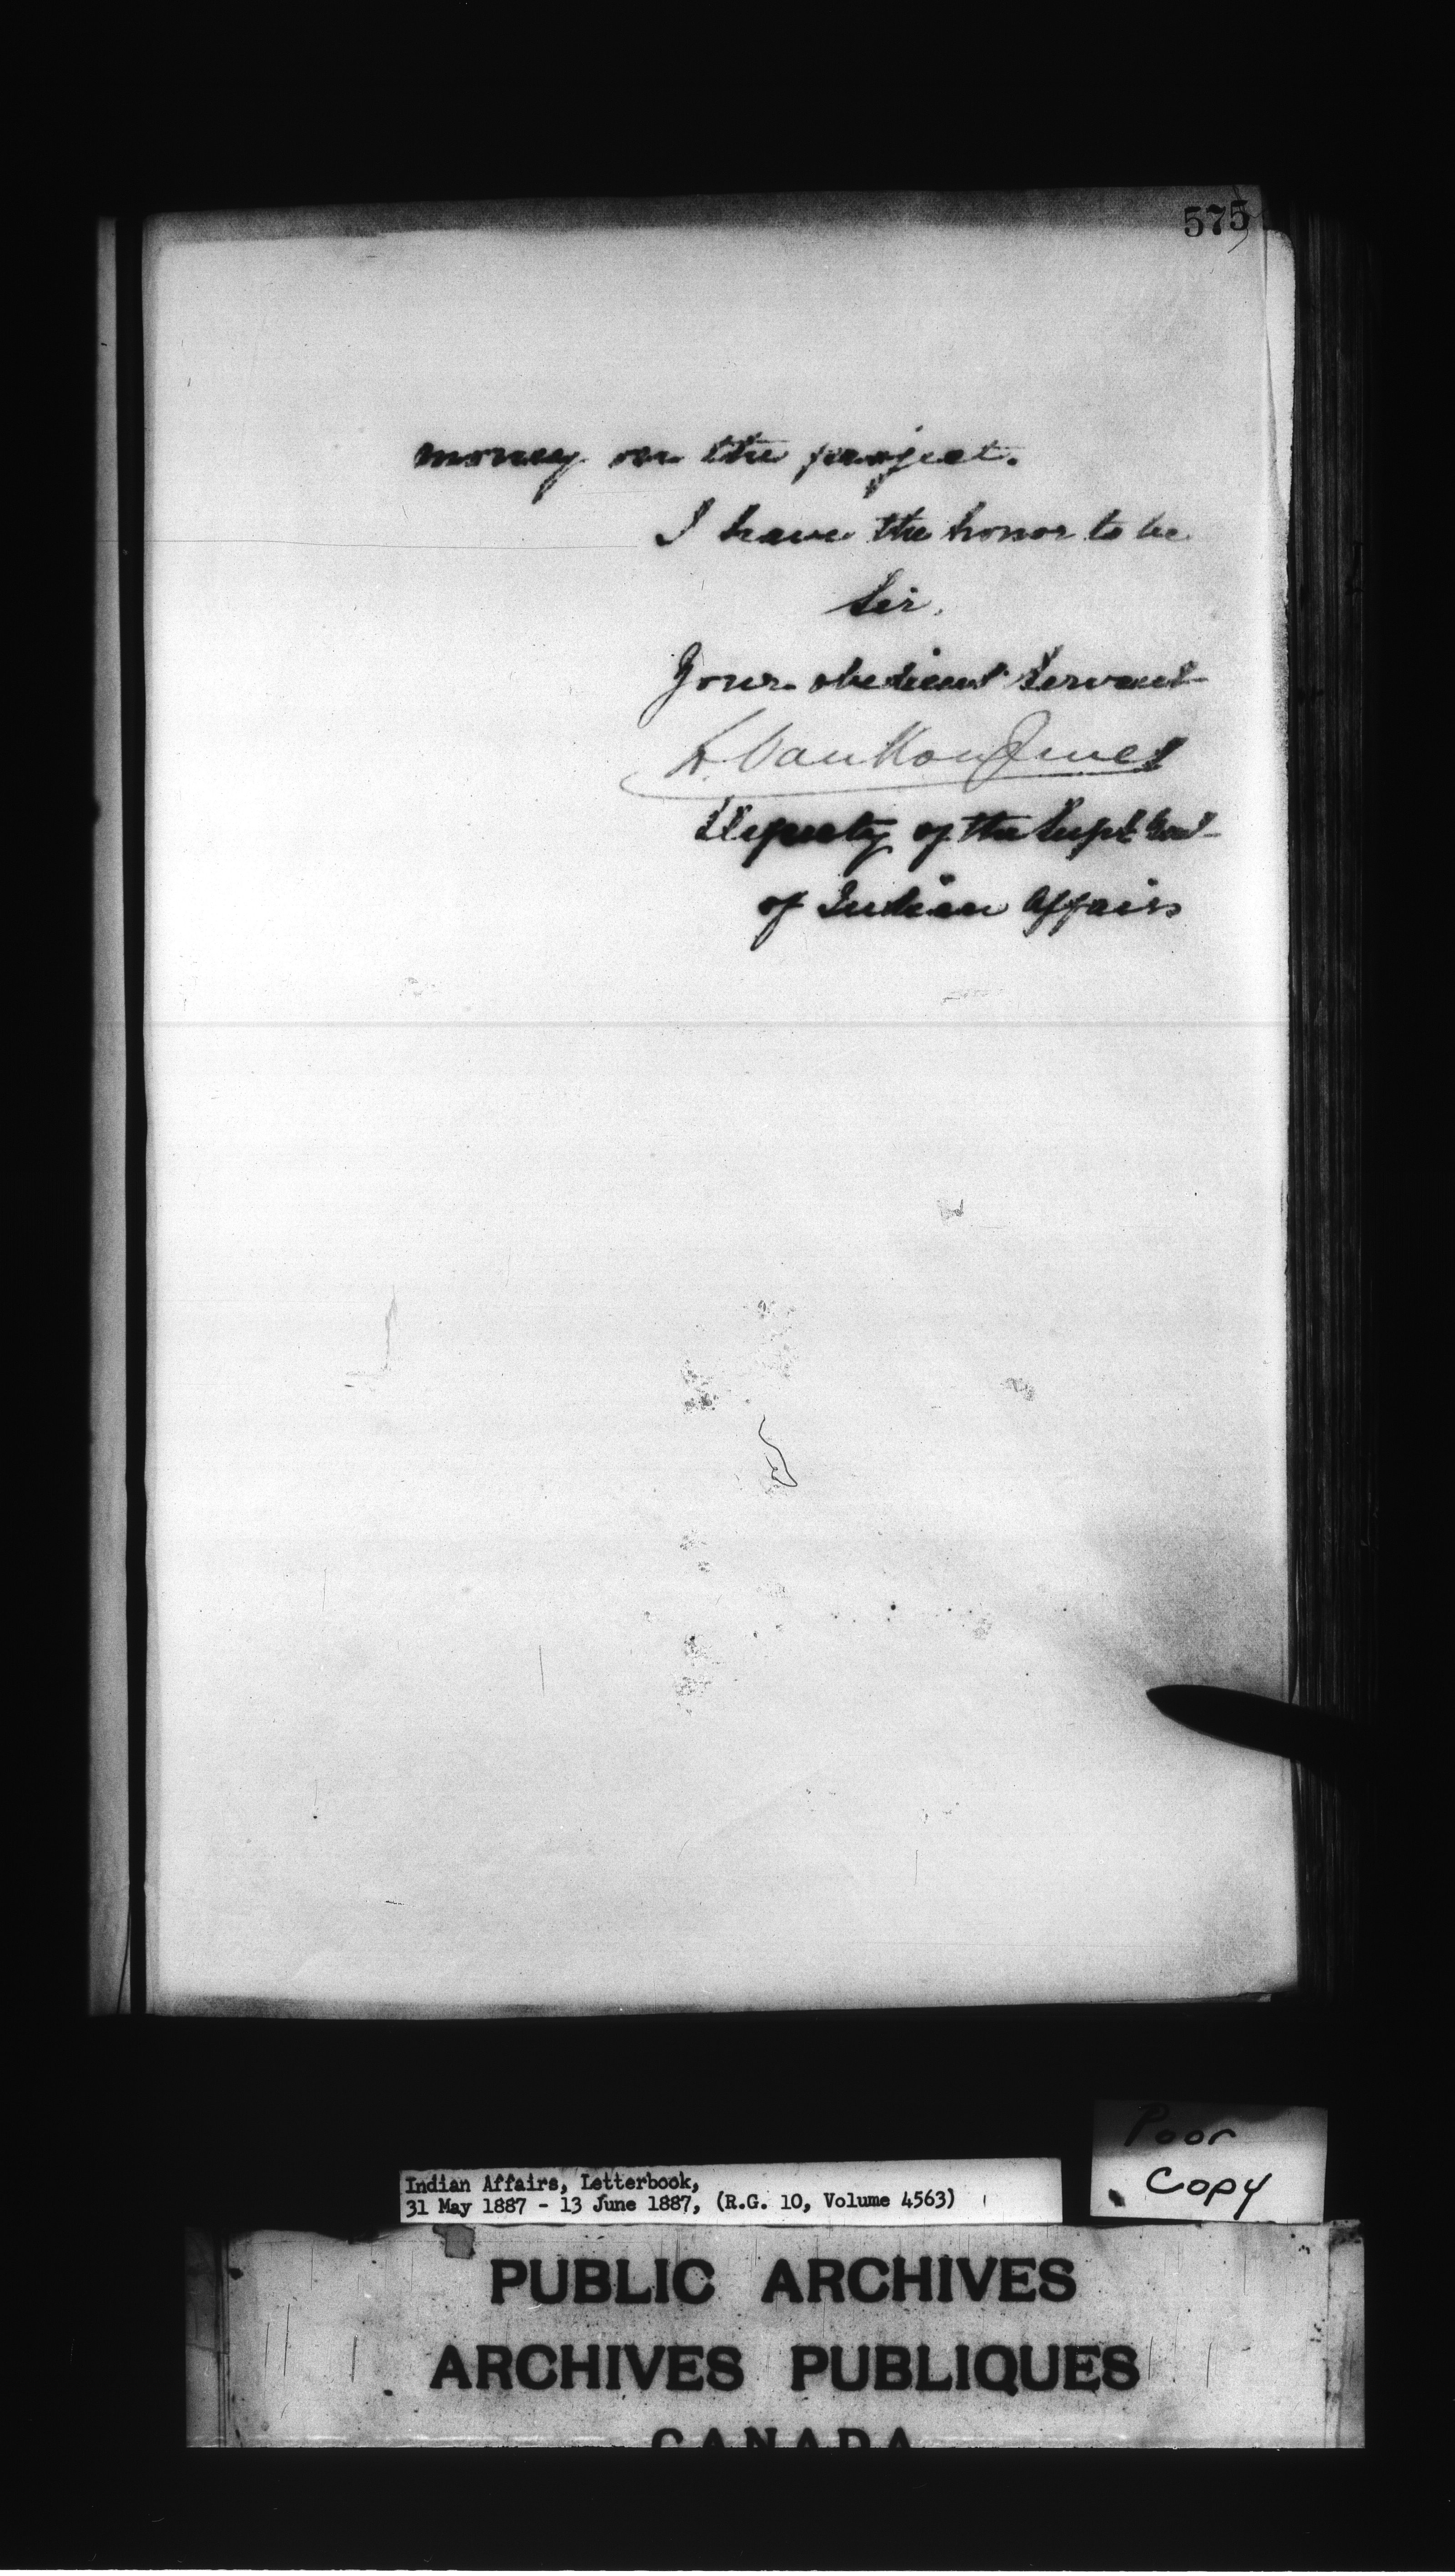 575
money on the project.
I have the honor to be
Sir,
Your obedient Servant
L. VanKoughnet
Deputy of the Supt Genl
of Indian Affairs
Poor
Copy
Indian Affairs, Letterbook,
31 May 1887 - 13 June 1887, (R.G. 10, Volume 4563)
PUBLIC ARCHIVES
ARCHIVES PUBLIQUES
CANADA